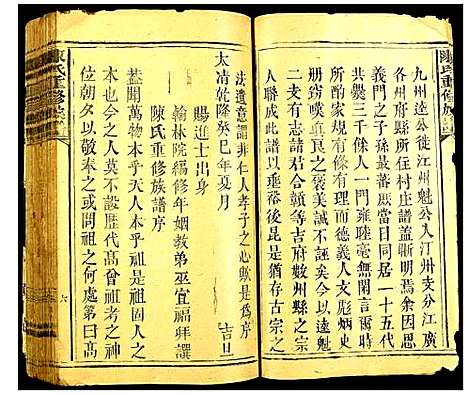 九州逵公徙江州魁公入汀州支分江廣
各州府縣所任村庄譜蓋晰明焉余因思
義門之子孫蕃廡當日同居一十五代
共爨三千餘人一門雍睦毫無閒言爾時
所酌家規有條有理而德義人文彪炳史
册猗嘆真良之褒美誠不誣矣今以逵魁
二支有志諸君合贛等吉府數州縣之宗
人聯成此譜以垂裕後昆是猶存古宗之
法遺意謂非仁人孝子之心歟是為序
太清乾隆癸巳年夏月 吉日
賜進士出身
翰林院編修年姻教弟巫宜福拜譔
陳氏重修族譜序
蓋聞萬物本乎天人本乎祖是祖固人之
本也今之人莫不設歷代高曾祖考之神
位朝夕以敬奉之或問祖之何處第曰高
陳氏重修族譜
六
陳氏重修族譜